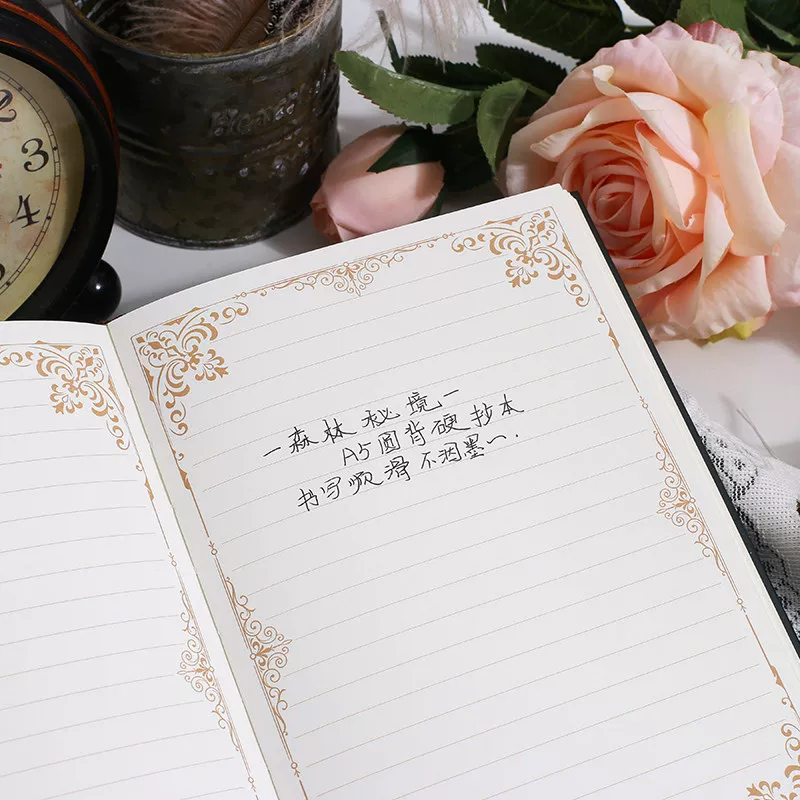 2
3
4
-森林秘境-
A5圆背硬抄本
书写顺滑不洇墨~.